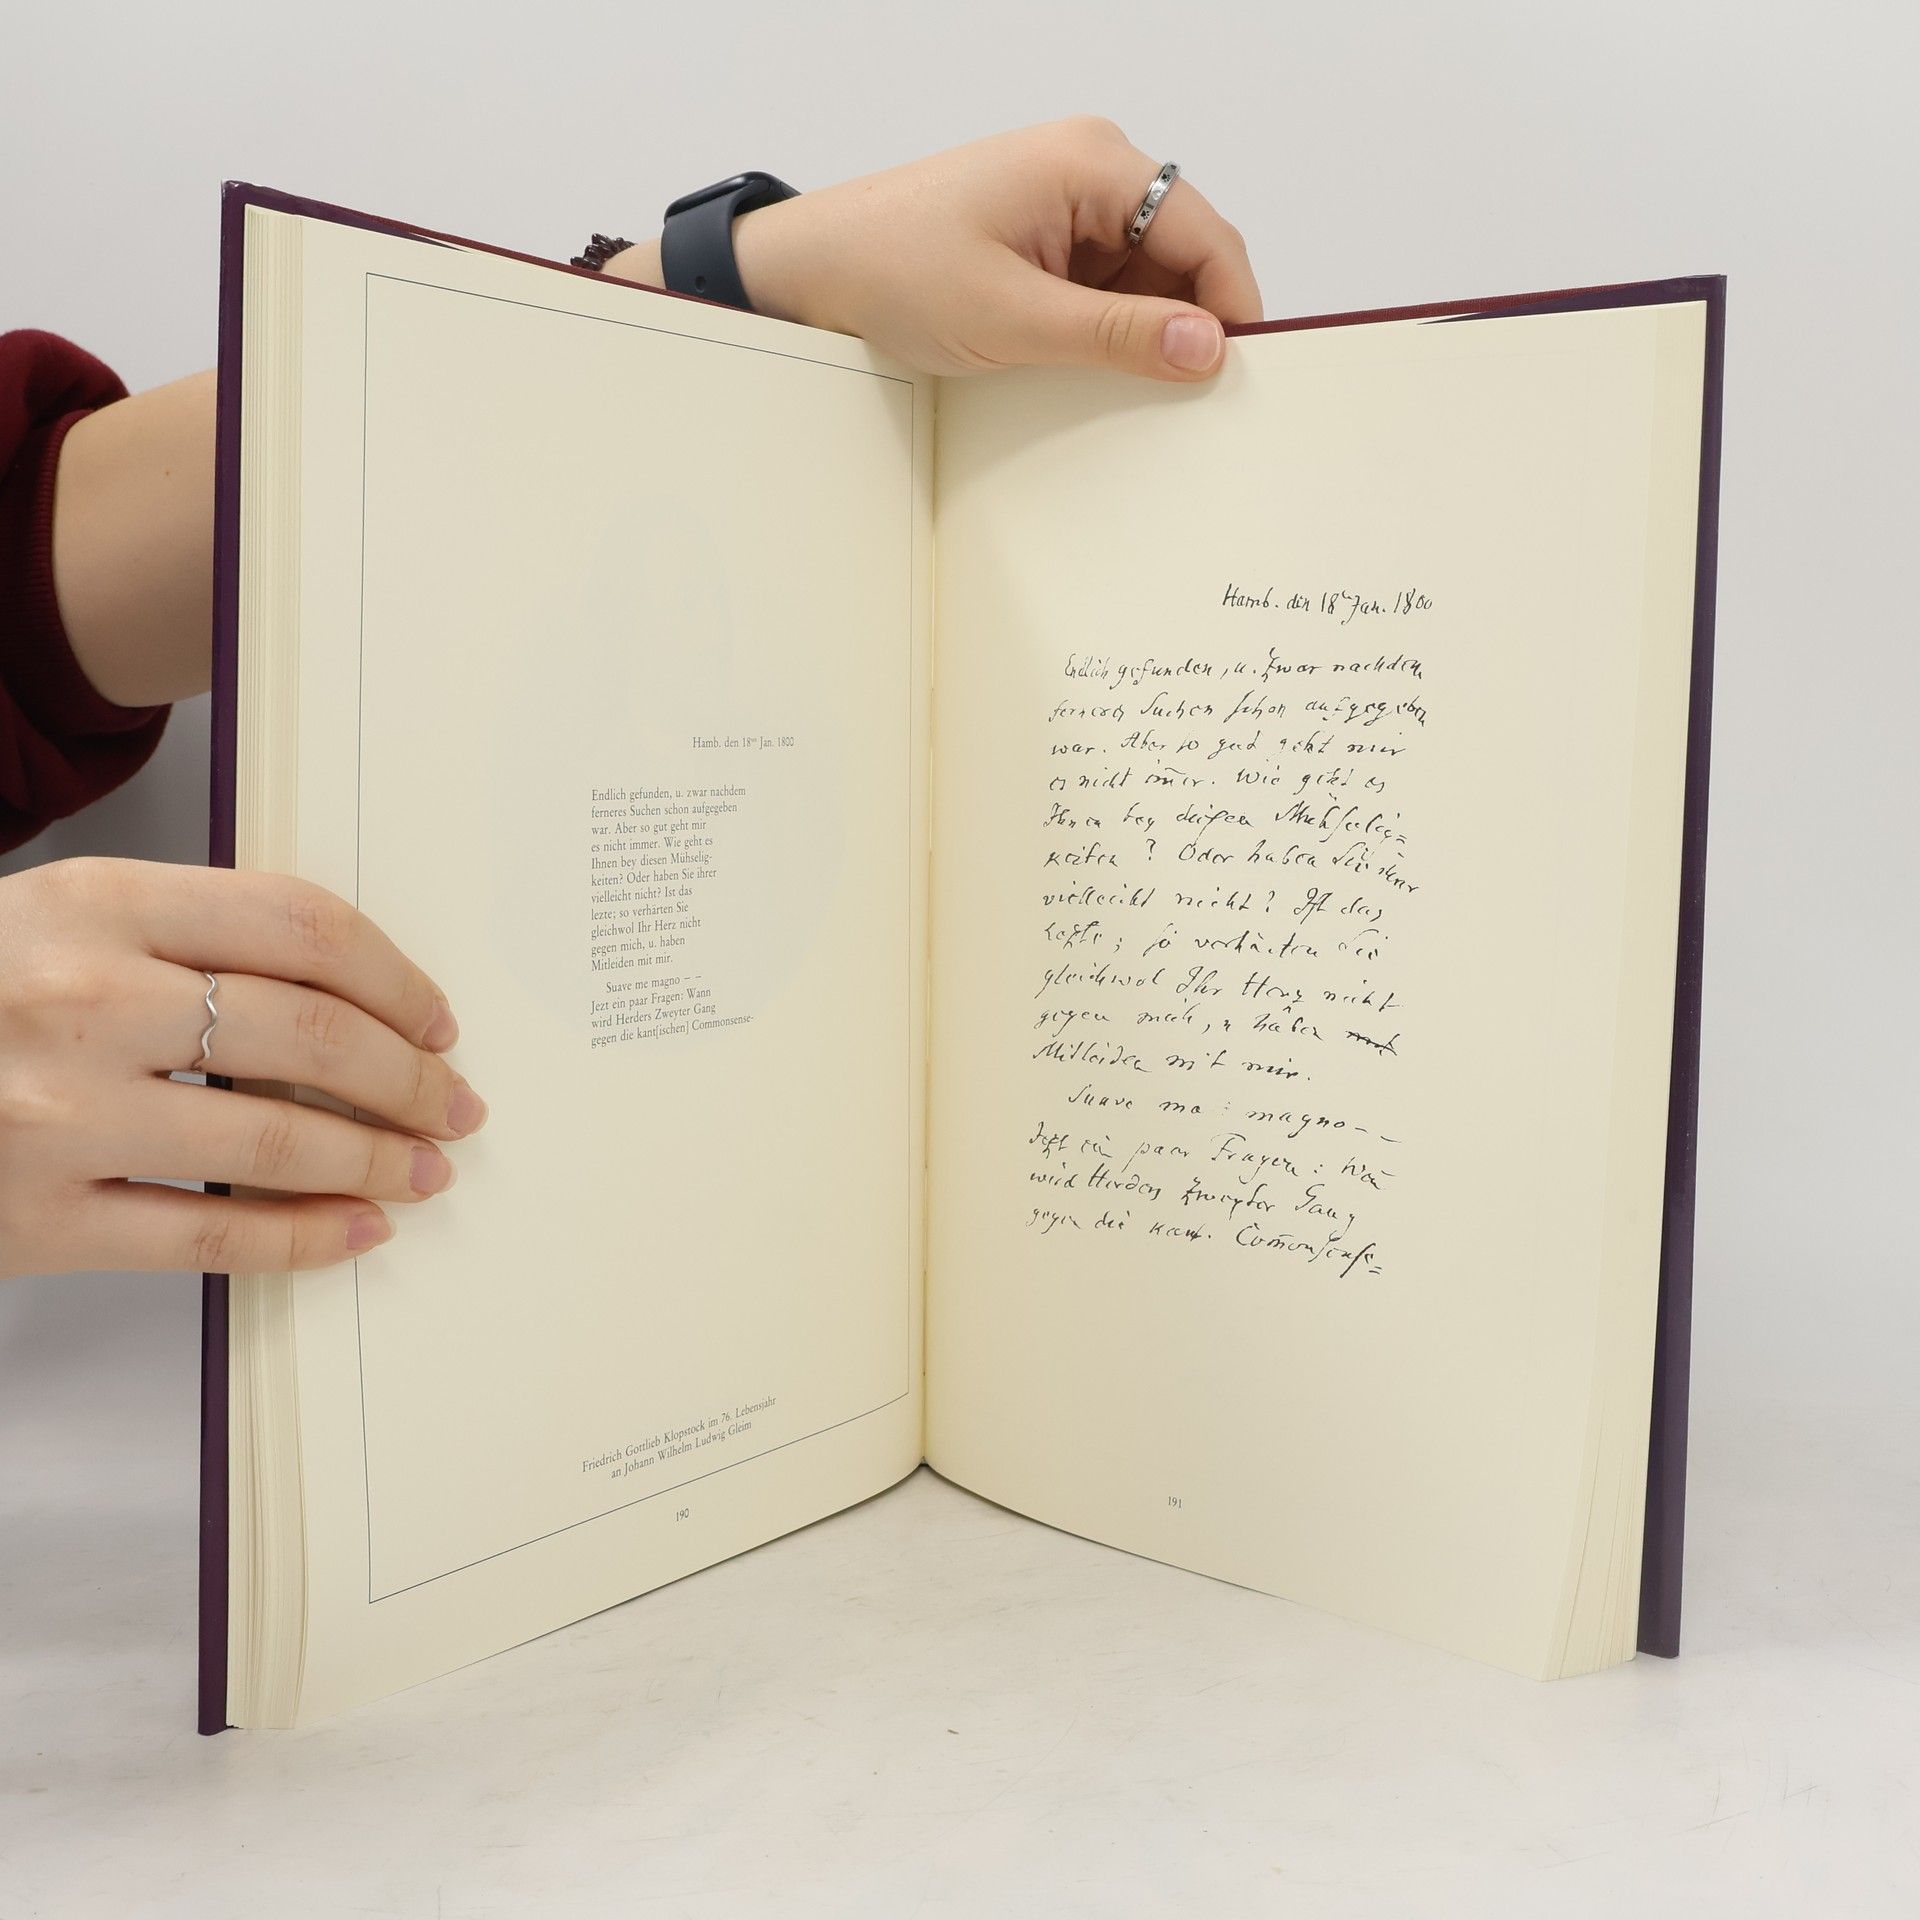 Hamb. den 18ten Jan. 1800
Endlich gefunden, u. zwar nachdem
ferneres Suchen schon aufgegeben
war. Aber so gut geht mir
es nicht immer. Wie geht es
Ihnen bey diesen Mühselig-
keiten? Oder haben Sie ihrer
vielleicht nicht? Ist das
lezte; so verhärten Sie
gleichwol Ihr Herz nicht
gegen mich, u. haben
Mitleiden mit mir.
Suave me magno – –
Jezt ein paar Fragen: Wann
wird Herders Zweyter Gang
gegen die kant[ischen] Commonsense-
Friedrich Gottlieb Klopstock im 76. Lebensjahr
an Johann Wilhelm Ludwig Gleim
190
Hamb. den 18ten Jan. 1800
Endlich gefunden, u. zwar nachdem
ferneres Suchen schon aufgegeben
war. Aber so gut geht mir
es nicht im̄er. Wie geht es
Ihnen bey diesen Mühselig=
keiten? Oder haben Sie ihrer
vielleicht nicht? Ist das
lezte; so verhärten Sie
gleichwol Ihr Herz nicht
gegen mich, u haben
Mitleiden mit mir.
Suave ma magno – –
Jezt ein paar Fragen: Wan̄
wird Herders Zweyter Gang
gegen die kant. Com̄onsense=
191